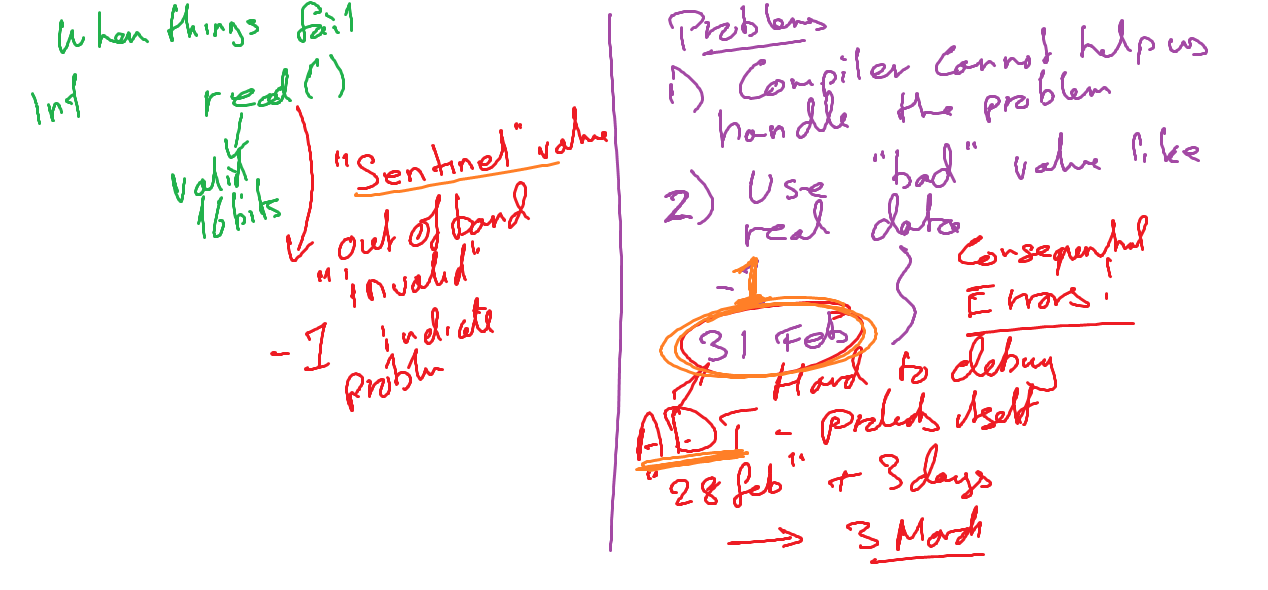 When things fail
Int read()
valid
16 bits
"Sentinel" value
out of band
"invalid"
-1 indicate
problm
Problems
1) Compiler cannot help us
handle the problem
2) Use "bad" value like
real data
Consequential
Errors!
-1
31 Feb
Hard to debug
ADT - protects itself
"28 feb" + 3 days
→ 3 March